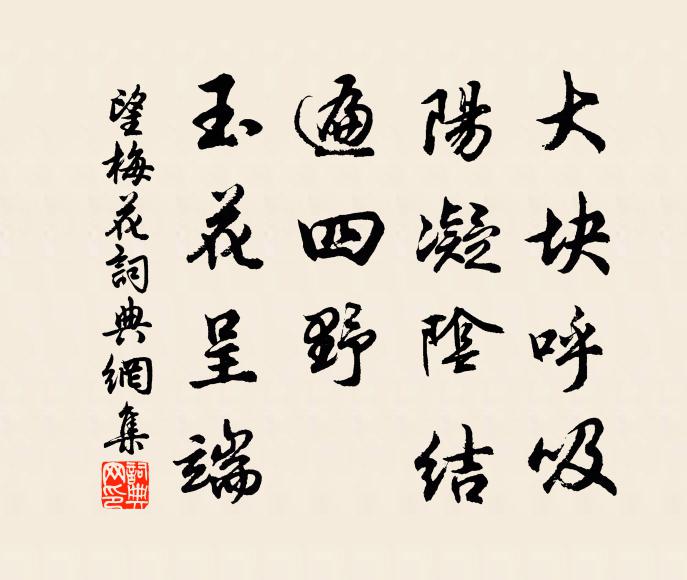 大块呼吸
陽凝陰结
遍四野
玉花呈端
望梅花詞典網集
詞典网印